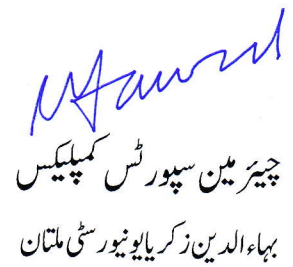 چیئرمین سپورٹس کمپلیکس
بہاءالدین زکریا یونیورسٹی ملتان